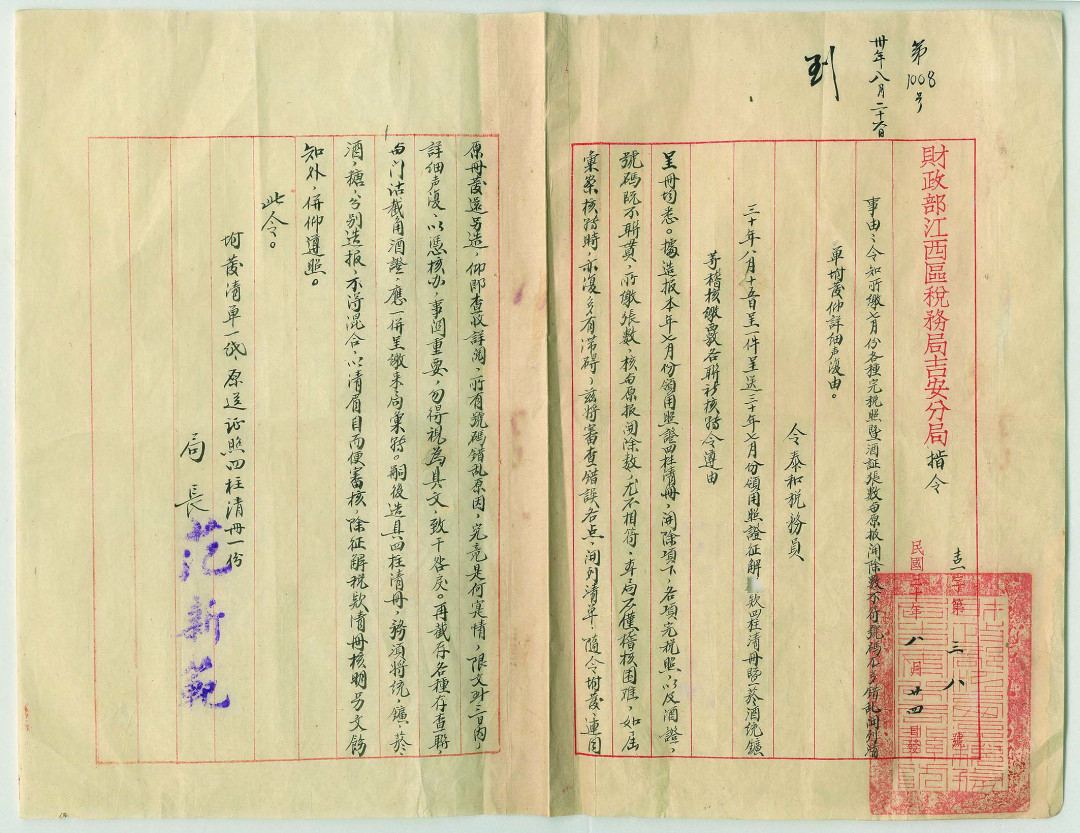 第1008号
卅年八月二十六日
到
財政部江西區稅務局吉安分局指令
吉字第三八號
民國三十年八月廿四日發
事由：令知所繳七月份各種完稅照暨酒証張數與原报開除數不符號碼亦多錯乱開列清
單坿發仰詳細声復由。
令泰和稅務員
三十年八月十五日呈一件呈送三十年七月份領用照證征解款四柱清冊暨菸酒統鑛
等稽核繳覈各聯祈核转令遵由
呈冊均悉。據造报本年七月份領用照證四柱清冊，開除項下，各項完稅照，以及酒證，
號碼既不聯貫，所繳張數，核與原报開除數，尤不相符，本局不僅稽核困难，如届
彙案核转時，亦復多有滞碍，兹將審查錯誤各点，開列清单，隨令坿發，連同
原冊發還另造，仰即查收詳閱，所有號碼錯乱原因，究竟是何寔情，限文到三日內，
詳细声復，以憑核办，事関重要，勿得視為具文，致干咎戾。再截存各種存查聯
与门沽截角酒證，應一併呈繳来局彙转。嗣後造具四柱清冊，務須將統，鑛，菸，
酒，糖，分别造报，不得混合，以清眉目而便審核，除征解稅欵清冊核明另文飭
知外，併仰遵照。
此令。
坿發清单一纸 原送证照四柱清冊一份
局長 范新範